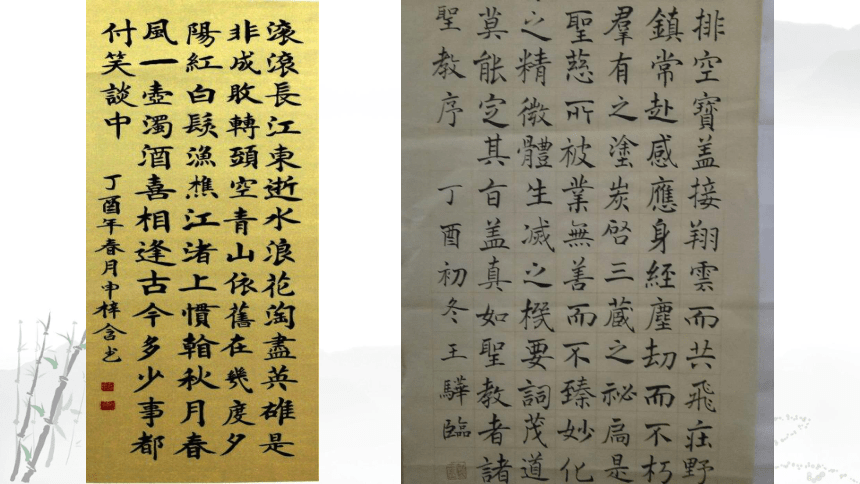 滚滚長江東逝水浪花淘盡英雄是
非成敗轉頭空青山依舊在幾度夕
陽紅白髮漁樵江渚上慣翰秋月春
風一壺濁酒喜相逢古今多少事都
付笑談中
丁酉年春月申梓含书
排空寶盖接翔雲而共飛莊野
鎮常赴感應身經塵劫而不朽
羣有之塗炭啓三藏之祕扃是
聖慈所被業無善而不臻妙化
之精微體生滅之機要詞茂道
莫能定其旨盖真如聖教者諸
聖教序 丁酉初冬王驊臨